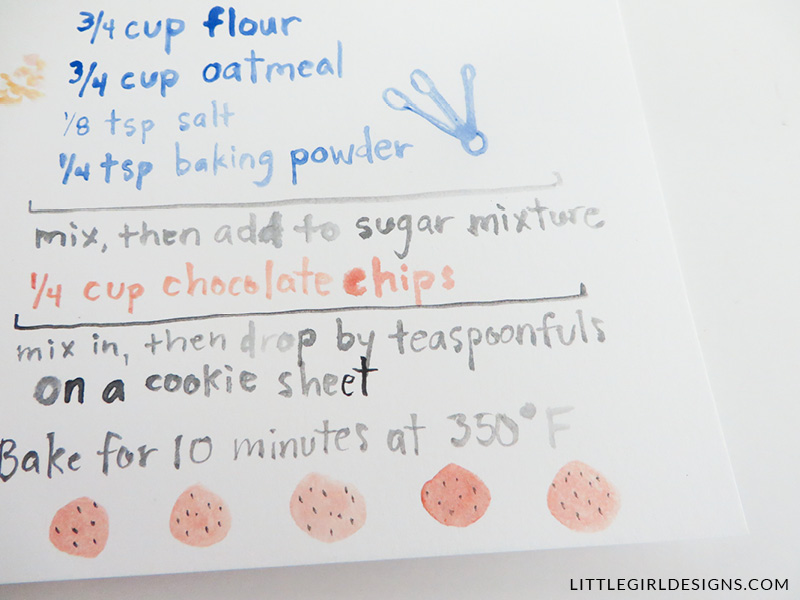 3/4 cup flour
3/4 cup oatmeal
1/8 tsp salt
1/4 tsp baking powder
mix, then add to sugar mixture
1/4 cup chocolate chips
mix in, then drop by teaspoonfuls
on a cookie sheet
Bake for 10 minutes at 350° F
LITTLEGIRLDESIGNS.COM